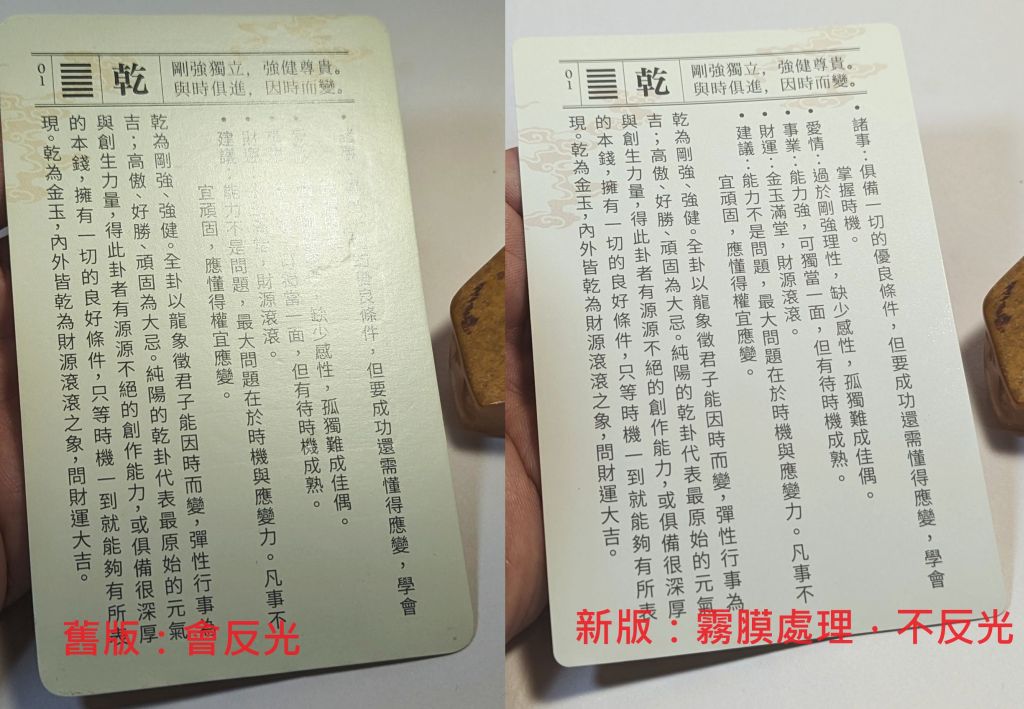 01
乾
剛強獨立，強健尊貴。
與時俱進，因時而變。
優良條件，但要成功還需懂得應變，學會
缺少感性，孤獨難成佳偶。
當一面，但有待時機成熟。
• 財運：財源滾滾。
• 建議：能力不是問題，最大問題在於時機與應變力。凡事不
宜頑固，應懂得權宜應變。
乾為剛強、強健。全卦以龍象徵君子能因時而變，彈性行事為
吉；高傲、好勝、頑固為大忌。純陽的乾卦代表最原始的元氣
與創生力量，得此卦者有源源不絕的創作能力，或俱備很深厚
的本錢，擁有一切的良好條件，只等時機一到就能夠有所表
現。乾為金玉，內外皆乾為財源滾滾之象，問財運大吉。
舊版：會反光
01
乾
剛強獨立，強健尊貴。
與時俱進，因時而變。
• 諸事：俱備一切的優良條件，但要成功還需懂得應變，學會
掌握時機。
• 愛情：過於剛強理性，缺少感性，孤獨難成佳偶。
• 事業：能力強，可獨當一面，但有待時機成熟。
• 財運：金玉滿堂，財源滾滾。
• 建議：能力不是問題，最大問題在於時機與應變力。凡事不
宜頑固，應懂得權宜應變。
乾為剛強、強健。全卦以龍象徵君子能因時而變，彈性行事為
吉；高傲、好勝、頑固為大忌。純陽的乾卦代表最原始的元氣
與創生力量，得此卦者有源源不絕的創作能力，或俱備很深厚
的本錢，擁有一切的良好條件，只等時機一到就能夠有所表
現。乾為金玉，內外皆乾為財源滾滾之象，問財運大吉。
新版：霧膜處理．不反光